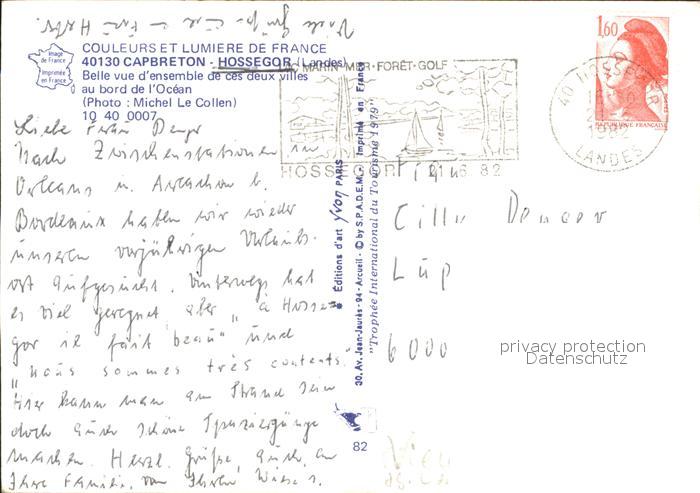 Viele Grüße
COULEURS ET LUMIERE DE FRANCE
40130 CAPBRETON - HOSSEGOR (Landes)
Belle vue d'ensemble de ces deux villes
au bord de l'Océan
(Photo : Michel Le Collen)
10 40 0007
Image
de France
Imprimée
en France
MARIN·MER·FORÊT·GOLF
HOSSEGOR
21 6 82
1,60
REPUBLIQUE FRANÇAISE
40 HOSSEGOR
1982
LANDES
Liebe
Nach Zwischenstationen in
Orleans u. Arcachon b.
Bordeaux haben wir wieder
unseren vorjährigen Urlaubs-
ort aufgesucht. Unterwegs hat
es viel geregnet aber "à Hosse-
gor il fait beau" und
"nous sommes très contents."
Hier kann man am Strand sein
doch auch schöne Spaziergänge
machen. Herzl. Grüße, auch an
Ihre Familie, von Ihrer
Éditions d'art yvon PARIS
30, Av. Jean-Jaurès - 94 - Arcueil - © by S.P.A.D.E.M. - Imprimé en France
"Trophée International du Tourisme 1979"
82
Cilly
6000
privacy protection
Datenschutz